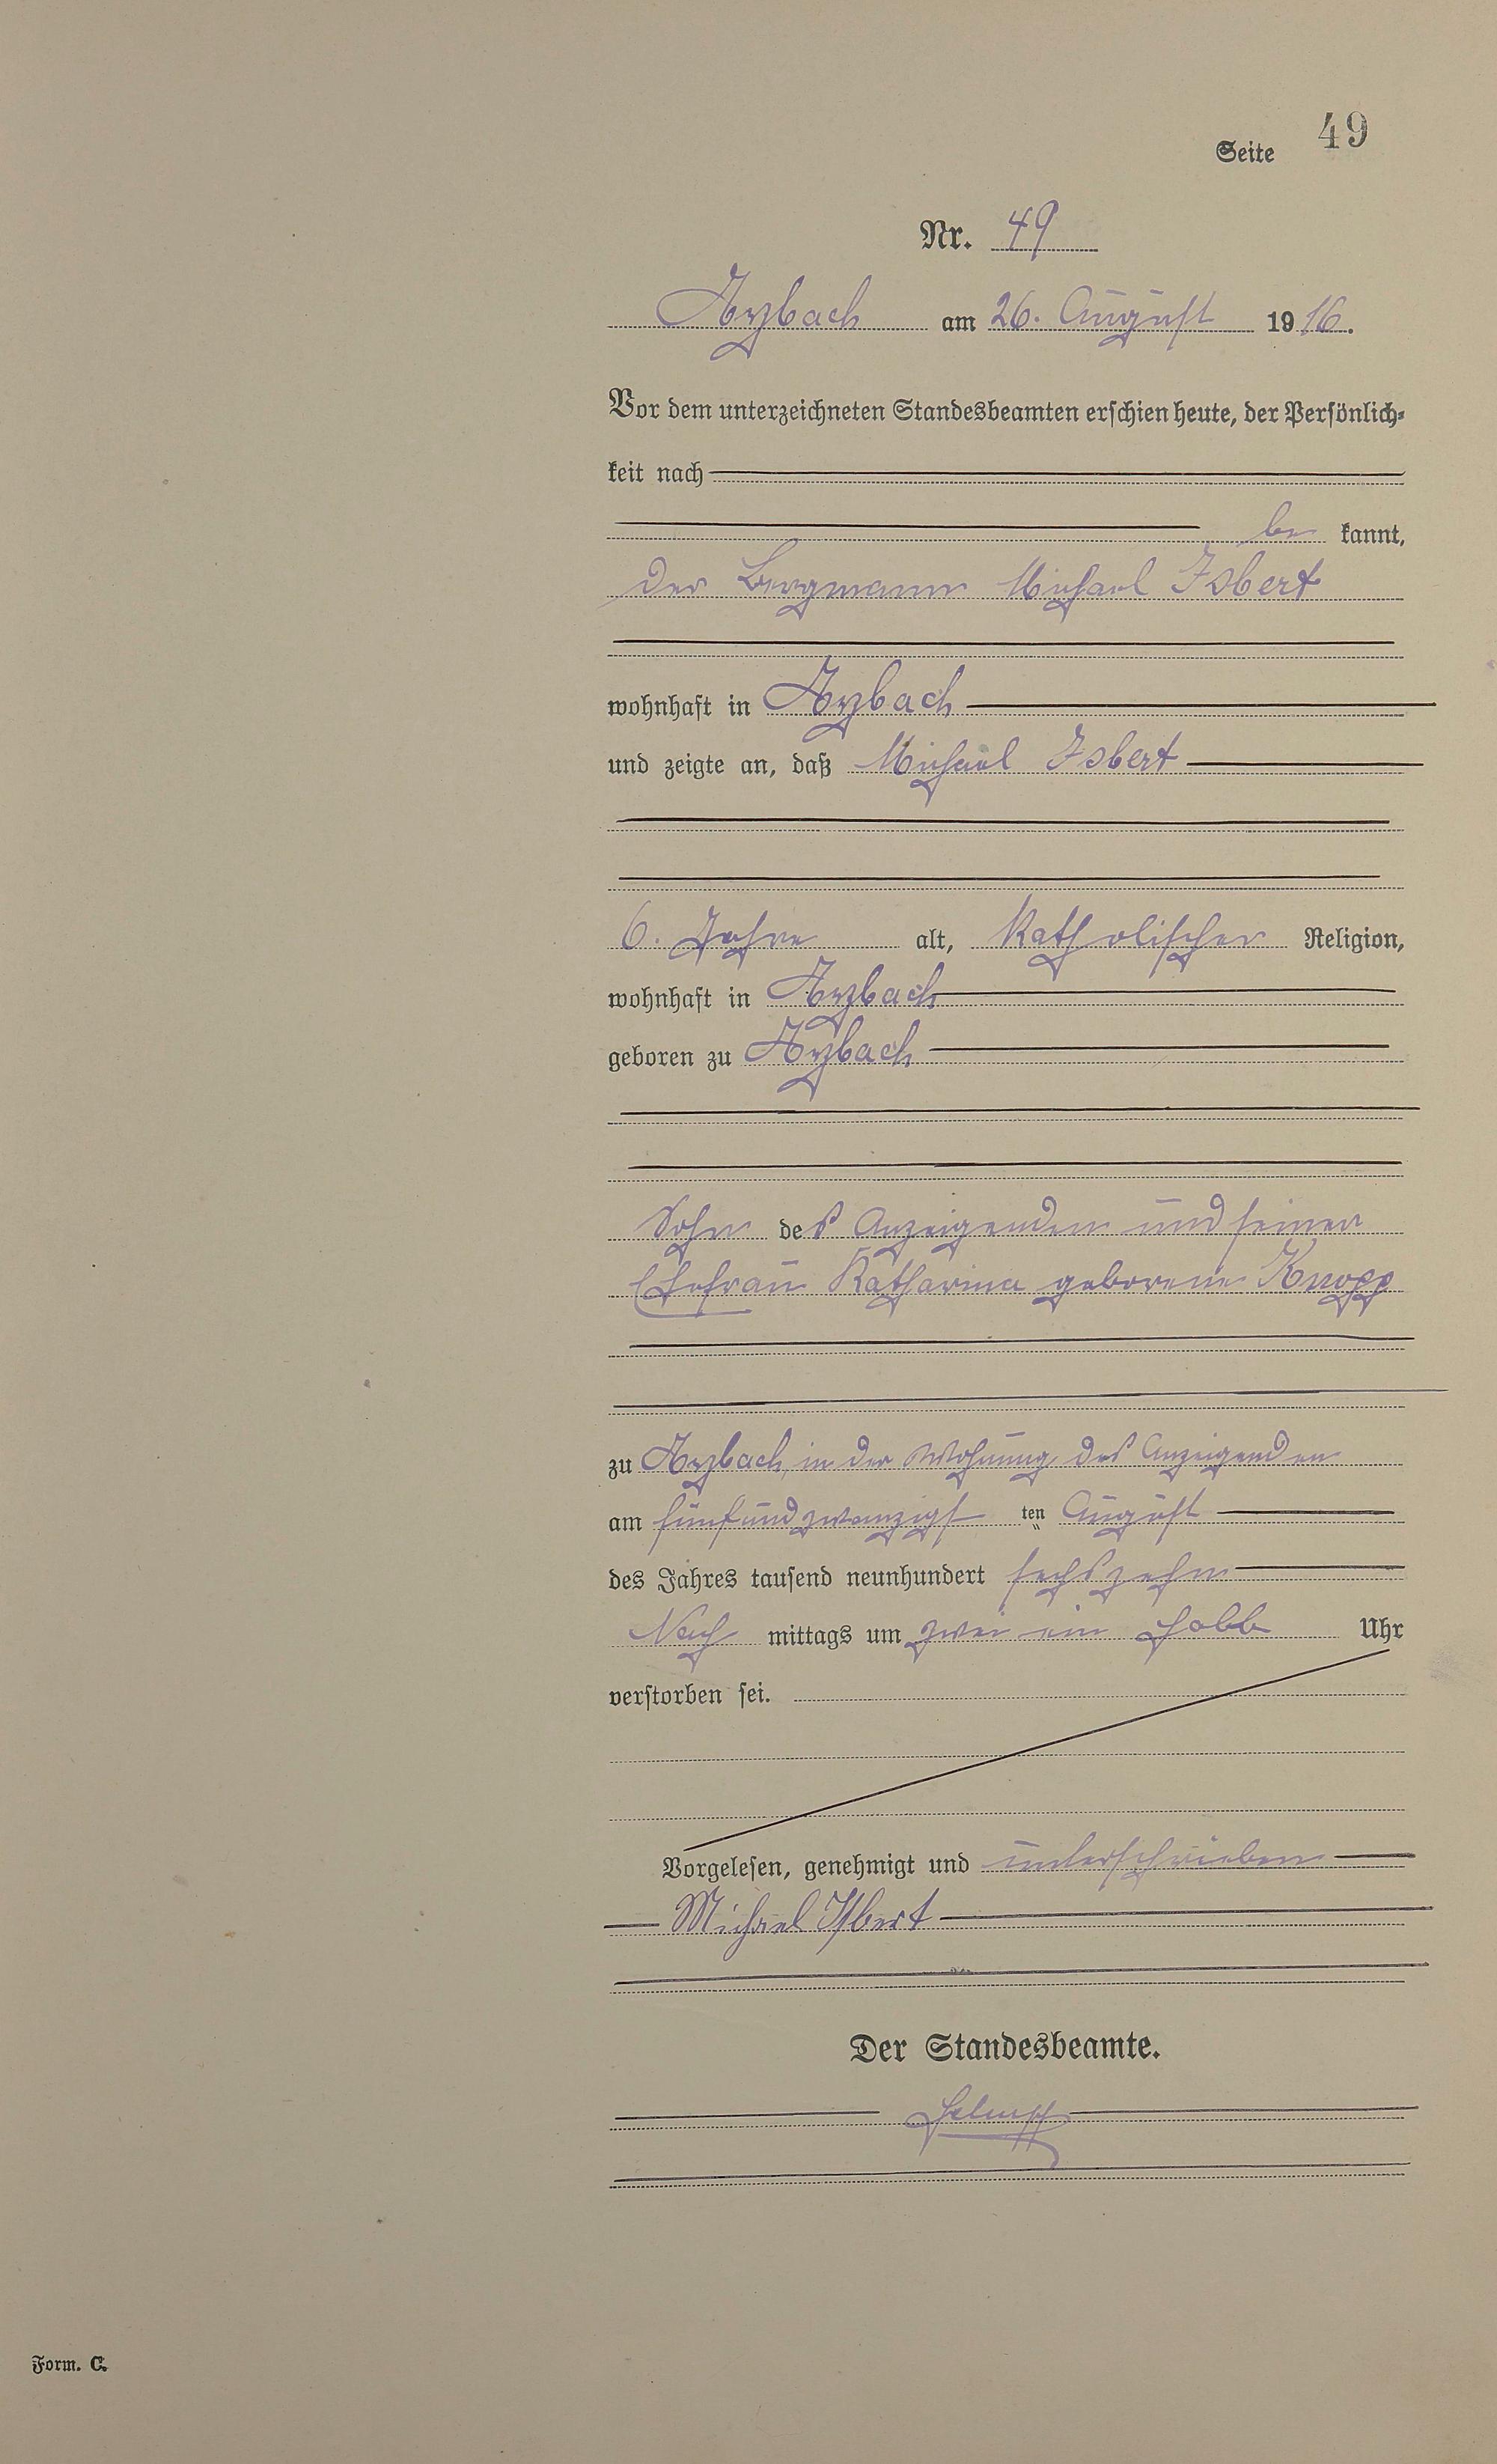 Seite 49
Nr. 49
Arzbach am 26. August 1916.
Vor dem unterzeichneten Standesbeamten erschien heute, der Persönlich-
keit nach
be kannt,
der Bergmann Michael Isbert
wohnhaft in Arzbach
und zeigte an, daß Michael Isbert
6. Jahre alt, Katholischer Religion,
wohnhaft in Arzbach
geboren zu Arzbach
Sohn des Anzeigenden und seiner
Ehefrau Katharina geborene Knopp
zu Arzbach, in der Wohnung des Anzeigenden
am fünfundzwanzigst ten August
des Jahres tausend neunhundert sechszehn
Nach mittags um zwei ein halb Uhr
verstorben sei.
Vorgelesen, genehmigt und unterschrieben
Michael Isbert
Der Standesbeamte.
Form. C.